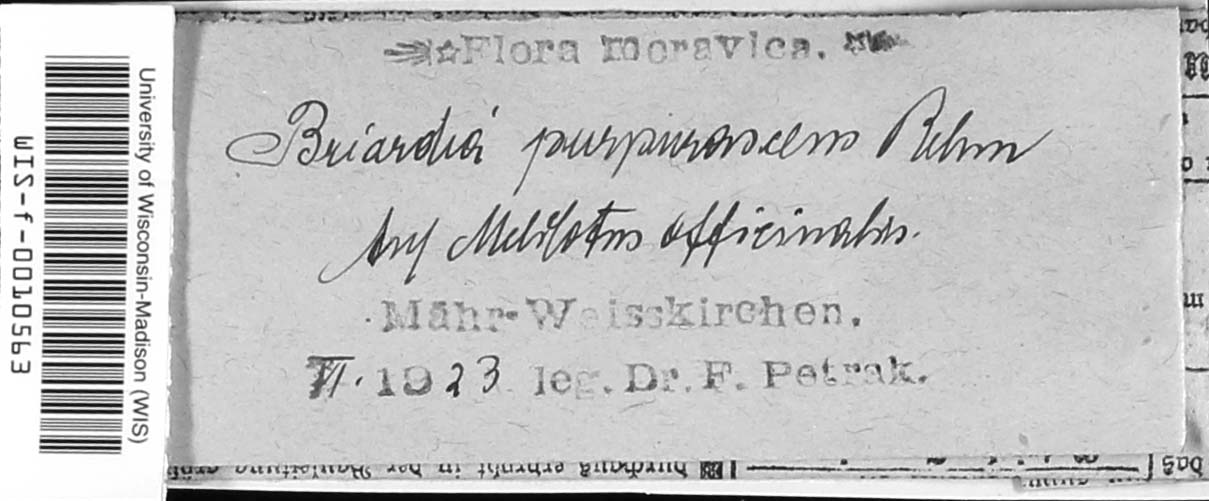 Flora moravica.
Briardia purpurascens Rehm
Auf Melilotus officinalis.
Mähr-Weisskirchen.
VI. 1923 leg. Dr. F. Petrak.
University of Wisconsin-Madison (WIS)
WIS-f-0010563
durchaus erprobt in der
daß